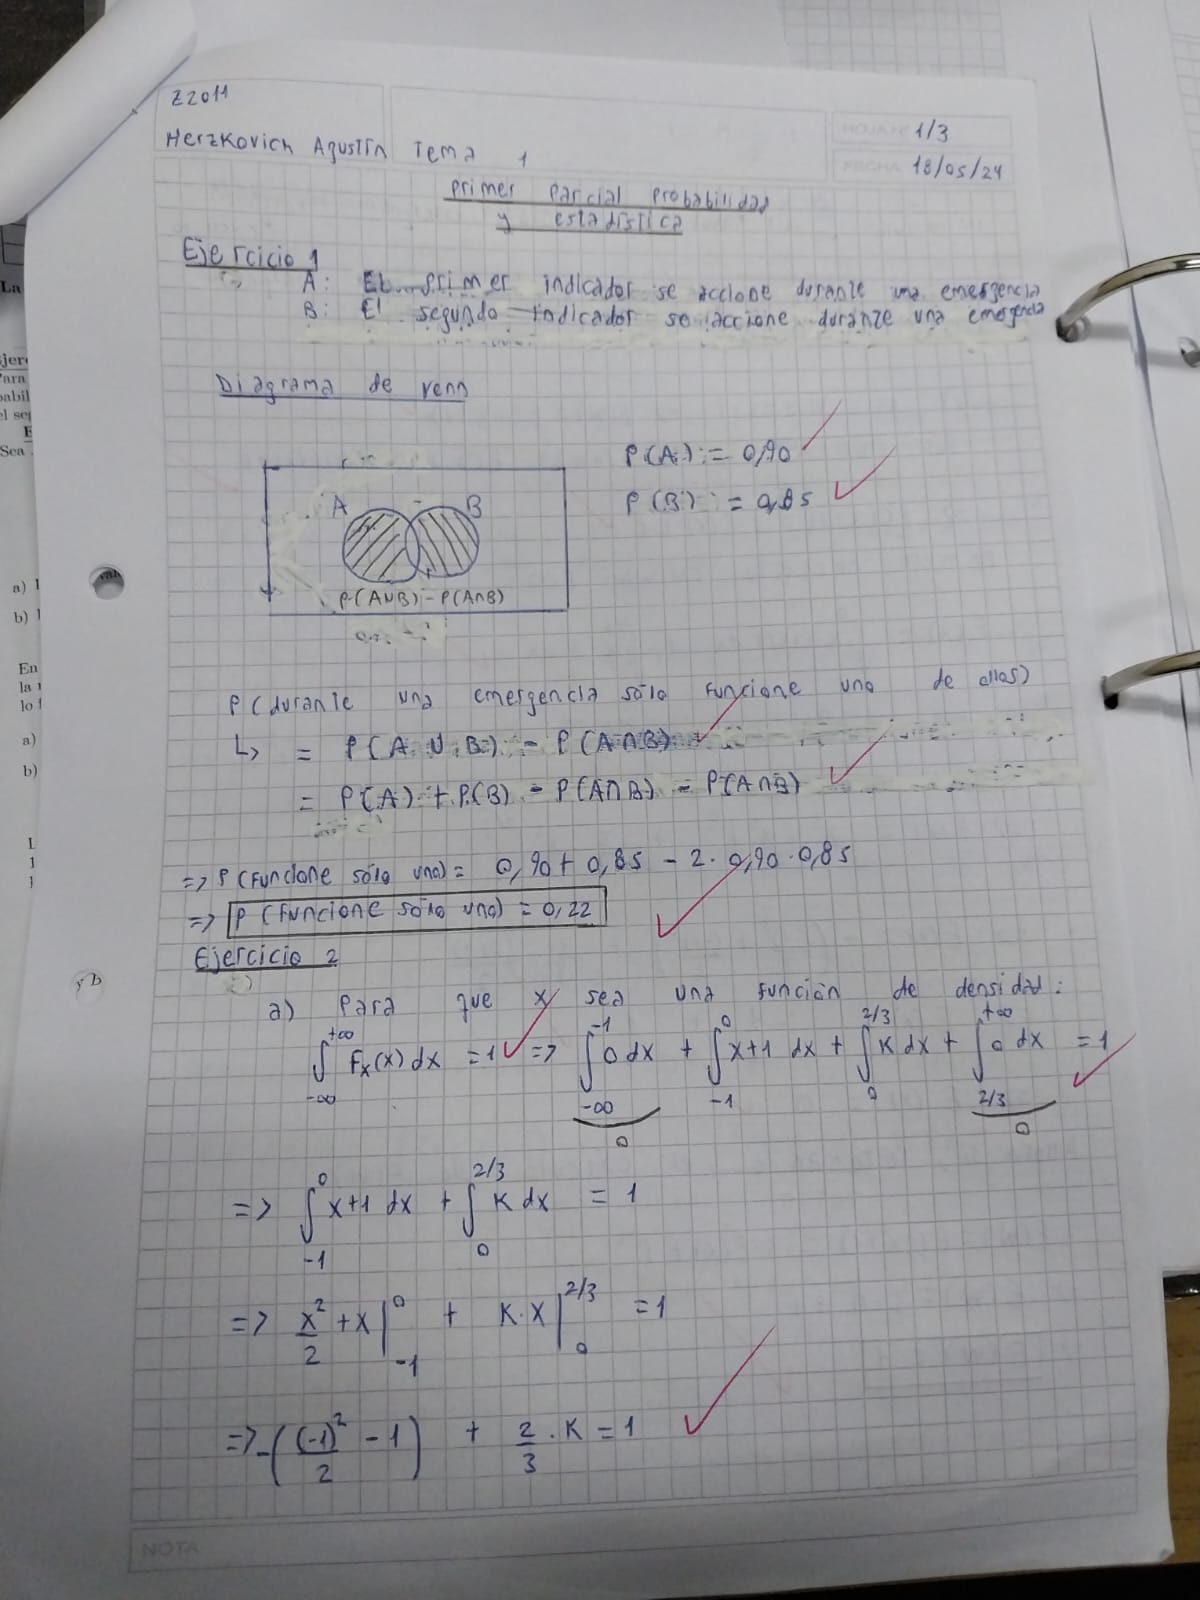 Z2011
Herzkovich Agustín Tema 1
HOJA Nº 1/3
FECHA 18/05/24
primer parcial probabilidad
y estadística
Ejercicio 1
A: El primer indicador se accione durante una emergencia
B: El segundo indicador se accione durante una emergencia
Diagrama de venn
P(A) = 0,90
P(B) = 0,85
A B
P(A∪B) - P(A∩B)
P(durante una emergencia sólo funcione uno de ellos)
↳ = P(A ∪ B) - P(A∩B)
= P(A) + P(B) - P(A∩B) - P(A∩B)
=> P(funcione sólo uno) = 0,90 + 0,85 - 2 · 0,90 · 0,85
=> P(funcione sólo uno) = 0,22
Ejercicio 2
a) Para que x sea una función de densidad:
∫_{-∞}^{+∞} Fx(x) dx = 1 => ∫_{-∞}^{-1} 0 dx + ∫_{-1}^{0} x+1 dx + ∫_{0}^{2/3} K dx + ∫_{2/3}^{+∞} 0 dx = 1
0 0
=> ∫_{-1}^{0} x+1 dx + ∫_{0}^{2/3} K dx = 1
=> x²/2 + x |_{-1}^{0} + K·x |_{0}^{2/3} = 1
=> -((-1)²/2 - 1) + 2/3 · K = 1
NOTA
La
Sea
a)
b)
En
la
lo
a)
b)
y b